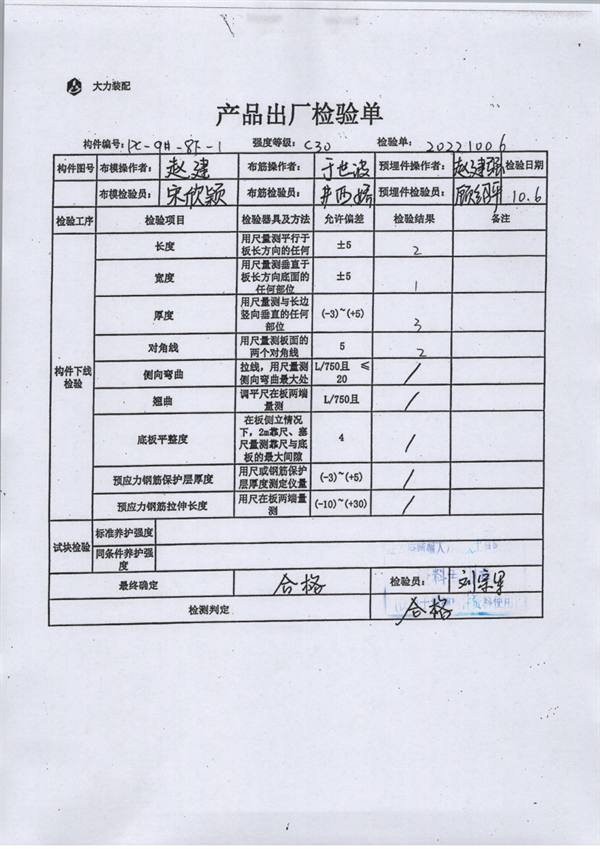 大力装配
产品出厂检验单
构件编号: 强度等级: C30 检验单: 20221006
构件图号 布模操作者: 赵建 布筋操作者: 于世波 预埋件操作者: 赵建强 检验日期
布模检验员: 宋欣颖 布筋检验员: 预埋件检验员: 10.6
检验工序 检验项目 检验器具及方法 允许偏差 检验结果 备注
构件下线检验
长度 用尺量测平行于板长方向的任何 ±5 2
宽度 用尺量测垂直于板长方向底面的任何部位 ±5 1
厚度 用尺量测与长边竖向垂直的任何部位 (-3)~(+5) 3
对角线 用尺量测板面的两个对角线 5 2
侧向弯曲 拉线，用尺量测侧向弯曲最大处 L/750且 ≤20 /
翘曲 调平尺在板两端量测 L/750且 /
底板平整度 在板侧立情况下，2m靠尺、塞尺量测靠尺与底板的最大间隙 4 /
预应力钢筋保护层厚度 用尺或钢筋保护层厚度测定仪量 (-3)~(+5) /
预应力钢筋拉伸长度 用尺在板两端量测 (-10)~(+30) /
试块检验 标准养护强度
同条件养护强度
最终确定 合格 检验员:
检测判定 合格